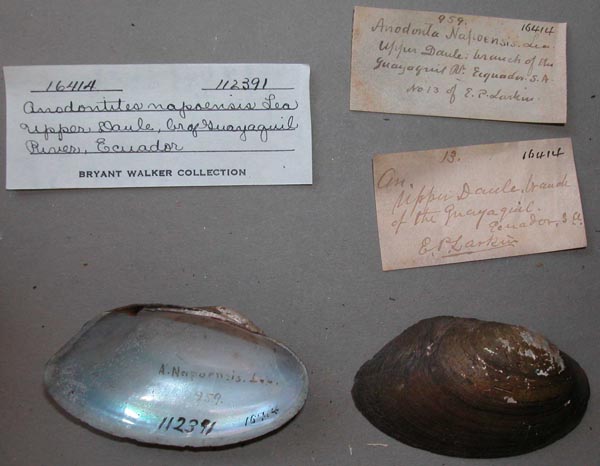 16414 112391
Anodontites napoensis Lea
Upper Daule, br of Guayaquil
River, Ecuador
BRYANT WALKER COLLECTION
959. 16414
Anodonta Napoensis. Lea
Upper Daule, branch of the
Guayaquil R. Ecquador. S.A.
No. 13 of E.P. Larkin.
13. 16414
An.
Upper Daule, branch
of the Guayaquil.
Ecuador, S.A.
E.P. Larkin
A. Napoensis. Lea.
959.
112391 16414